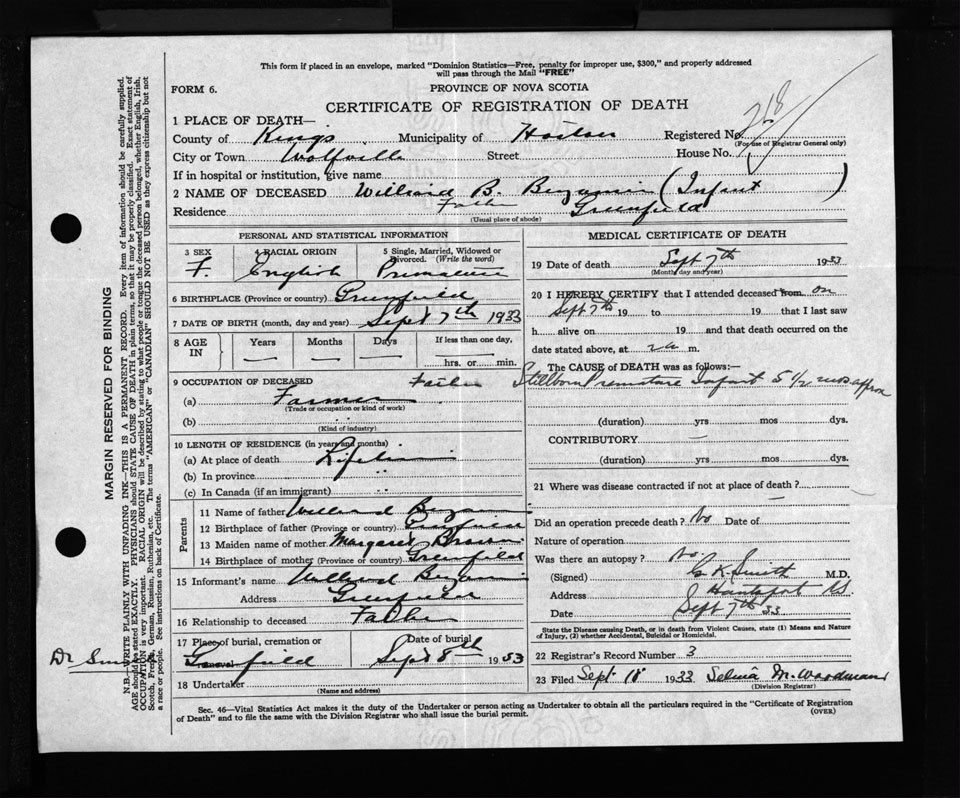 This form if placed in an envelope, marked "Dominion Statistics—Free, penalty for improper use, $300," and properly addressed
will pass through the Mail "FREE"
FORM 6.
PROVINCE OF NOVA SCOTIA
CERTIFICATE OF REGISTRATION OF DEATH
1 PLACE OF DEATH—
County of Kings Municipality of Horton Registered No. 218
(For use of Registrar General only)
City or Town Wolfville Street House No.
If in hospital or institution, give name
2 NAME OF DECEASED Williard B. Benjamin (Infant)
Father
Residence Greenfield
(Usual place of abode)
PERSONAL AND STATISTICAL INFORMATION
3 SEX 4 RACIAL ORIGIN 5 Single, Married, Widowed or
Divorced. (Write the word)
F. English
6 BIRTHPLACE (Province or country) Greenfield
7 DATE OF BIRTH (month, day and year) Sept 7th 1933
8 AGE IN Years Months Days If less than one day,
hrs. or min.
9 OCCUPATION OF DECEASED Father
(a) Farmer
(Trade or occupation or kind of work)
(b)
(Kind of industry)
10 LENGTH OF RESIDENCE (in years and months)
(a) At place of death Lifetime
(b) In province "
(c) In Canada (if an immigrant) "
Parents
11 Name of father Williard Benjamin
12 Birthplace of father (Province or country) Greenfield
13 Maiden name of mother Margaret Brown
14 Birthplace of mother (Province or country) Greenfield
15 Informant's name Williard Benjamin
Address Greenfield
16 Relationship to deceased Father
17 Place of burial, cremation or Date of burial
Greenfield Sept 8th 1933
18 Undertaker
(Name and address)
MEDICAL CERTIFICATE OF DEATH
19 Date of death Sept 7th 1933
(Month day and year)
20 I HEREBY CERTIFY that I attended deceased from on
Sept 7th 19 to 19 that I last saw
h alive on 19 and that death occurred on
date stated above, at 2 a m.
The CAUSE of DEATH was as follows:—
Stillborn Premature Infant 5 1/2 mos approx
(duration) yrs mos dys.
CONTRIBUTORY —
(duration) yrs mos dys.
21 Where was disease contracted if not at place of death?
Did an operation precede death? No Date of
Nature of operation
Was there an autopsy? No.
(Signed) G K Smith M.D.
Address Hantsport NS
Date Sept 7th 33
State the Disease causing Death, or in death from Violent Causes, state (1) Means and Nature
of Injury, (2) whether Accidental, Suicidal or Homicidal.
22 Registrar's Record Number 3
23 Filed Sept. 18 1933 Selma M. Woodman
(Division Registrar)
Sec. 46—Vital Statistics Act makes it the duty of the Undertaker or person acting as Undertaker to obtain all the particulars required in the "Certificate of Registration
of Death" and to file the same with the Division Registrar who shall issue the burial permit. (OVER)
MARGIN RESERVED FOR BINDING
N.B.—WRITE PLAINLY WITH UNFADING INK—THIS IS A PERMANENT RECORD. Every item of information should be carefully supplied.
AGE should be stated EXACTLY. PHYSICIANS should STATE CAUSE OF DEATH in plain terms, so that it may be properly classified. Exact statement of
OCCUPATION is very important. RACIAL ORIGIN will be described by stating to what people or tongue the deceased person belonged, whether English, Irish,
Scotch, French, German, Russian, Ruthenian, etc. The terms "AMERICAN" or "CANADIAN" SHOULD NOT BE USED as they express citizenship but not
a race or people. See instructions on back of Certificate.
Dr Smith